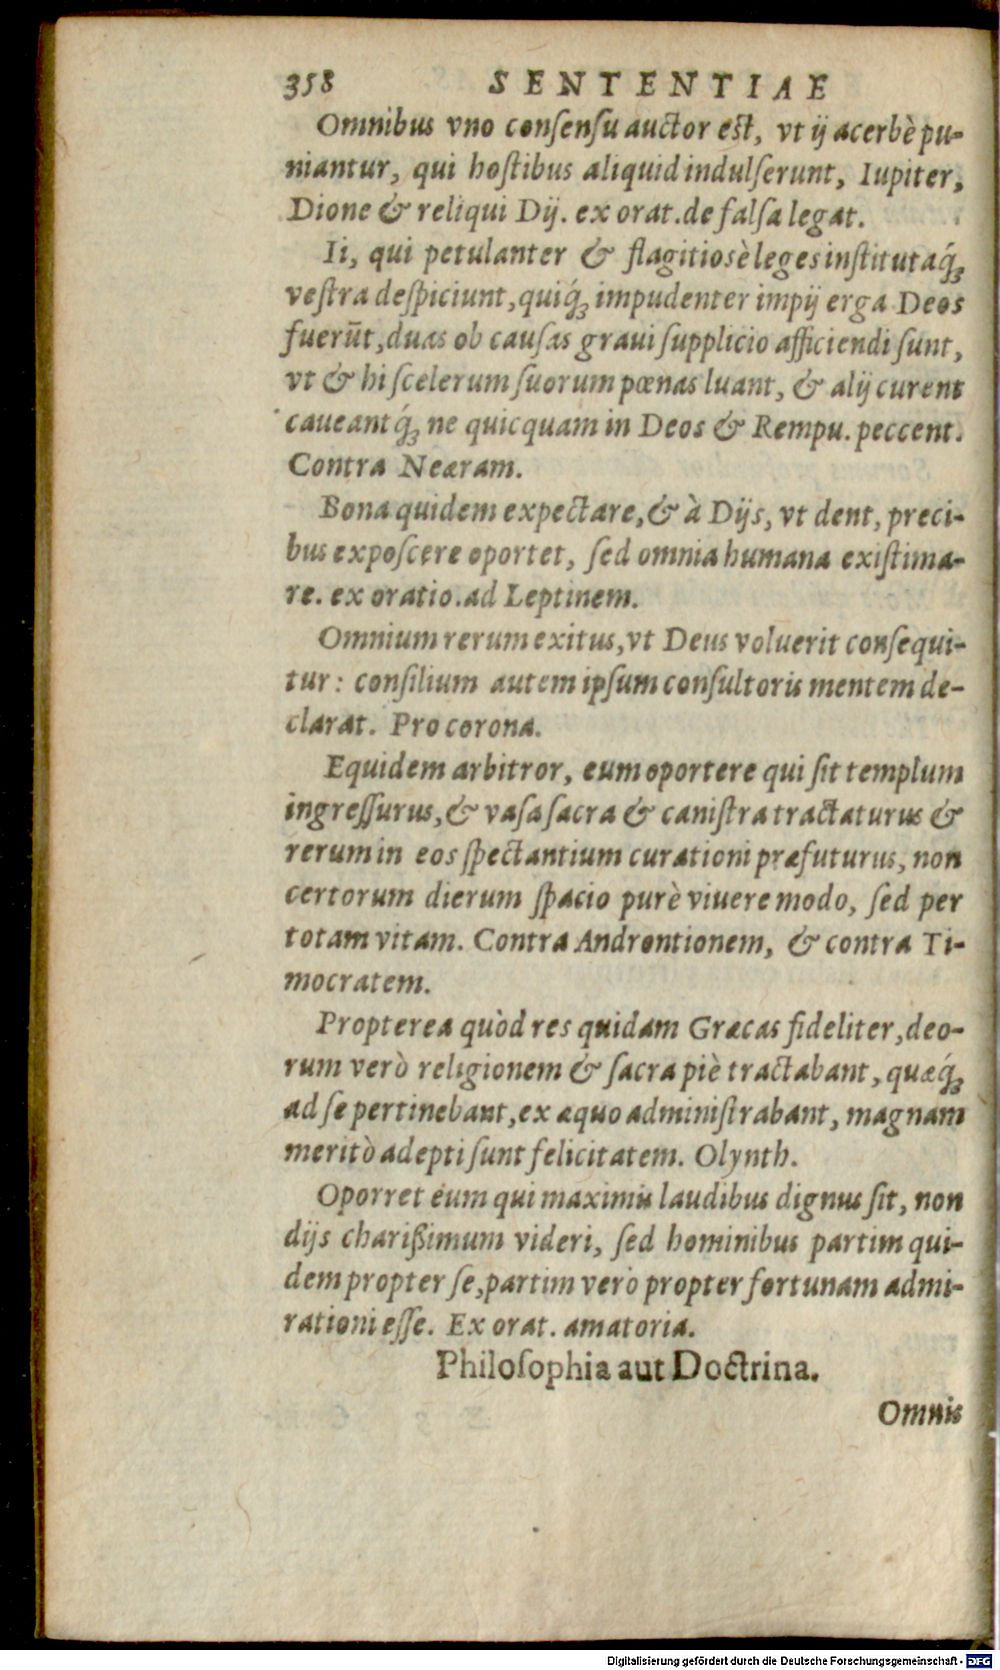 358 SENTENTIAE
Omnibus vno conſenſu auctor eſt, vt ij acerbè pu-
niantur, qui hoſtibus aliquid indulſerunt, Iupiter,
Dione & reliqui Dij. ex orat. de falſa legat.
Ii, qui petulanter & flagitioſè leges inſtitutaq́ꝫ
veſtra deſpiciunt, quiq́ꝫ impudenter impij erga Deos
fuerūt, duas ob cauſas graui ſupplicio afficiendi ſunt,
vt & hi ſcelerum ſuorum pœnas luant, & alij curent
caueantq́ꝫ ne quicquam in Deos & Rempu. peccent.
Contra Neæram.
Bona quidem expectare, & à Dijs, vt dent, preci-
bus expoſcere oportet, ſed omnia humana exiſtima-
re. ex oratio. ad Leptinem.
Omnium rerum exitus, vt Deus voluerit conſequi-
tur: conſilium autem ipſum conſultoris mentem de-
clarat. Pro corona.
Equidem arbitror, eum oportere qui ſit templum
ingreſſurus, & vaſa ſacra & caniſtra tractaturus &
rerum in eos ſpectantium curationi præfuturus, non
certorum dierum ſpacio purè viuere modo, ſed per
totam vitam. Contra Androntionem, & contra Ti-
mocratem.
Propterea quòd res quidam Græcas fideliter, deo-
rum verò religionem & ſacra piè tractabant, quæq́ꝫ
ad ſe pertinebant, ex æquo adminiſtrabant, magnam
meritò adepti ſunt felicitatem. Olynth.
Oporret eum qui maximis laudibus dignus ſit, non
dijs charißimum videri, ſed hominibus partim qui-
dem propter ſe, partim verò propter fortunam admi-
rationi eſſe. Ex orat. amatoria.
Philoſophia aut Doctrina.
Omnis
Digitalisierung gefördert durch die Deutsche Forschungsgemeinschaft - DFG